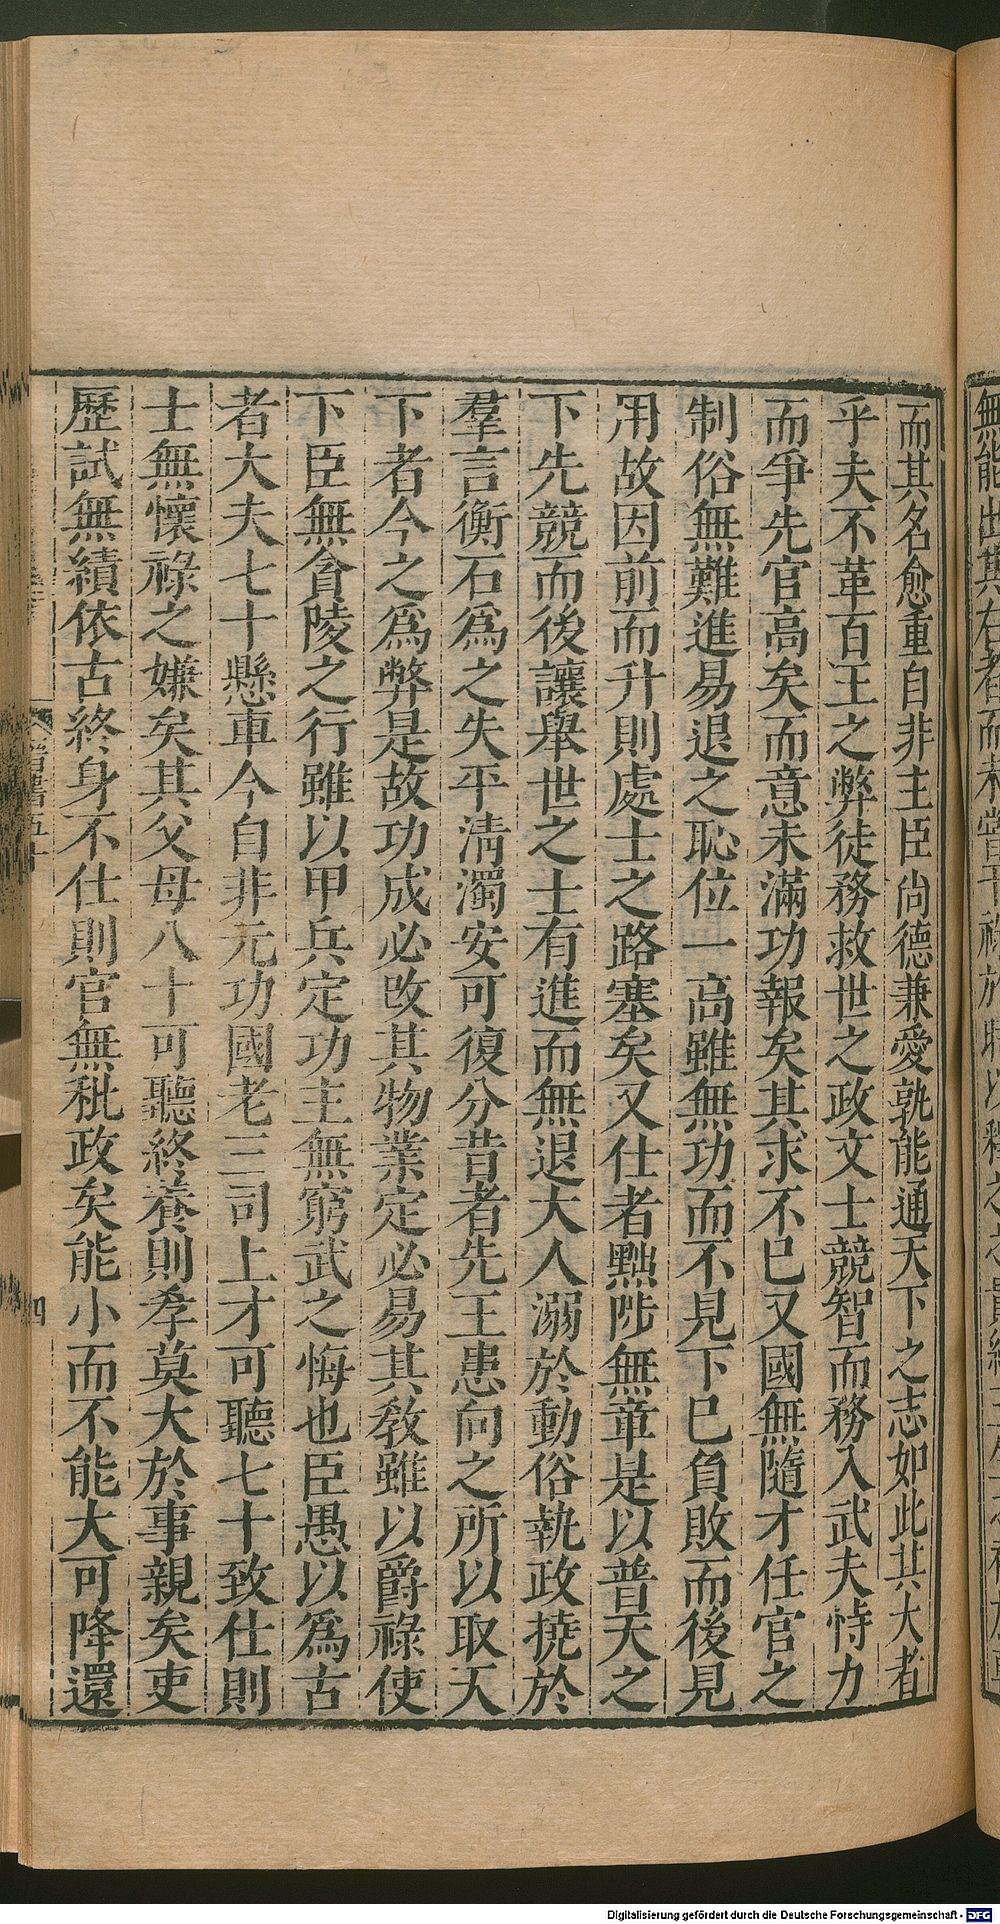 而其名愈重自非主臣尚德兼愛孰能通天下之志如此其大者
乎夫不革百王之弊徒務救世之政文士競智而務入武夫恃力
而爭先官高矣而意未滿功報矣其求不已又國無隨才任官之
制俗無難進易退之恥位一高雖無功而不見下已負敗而後見
用故因前而升則處士之路塞矣又仕者黜陟無章是以普天之
下先競而後讓舉世之士有進而無退大人溺於動俗執政撓於
羣言衡石爲之失平清濁安可復分昔者先王患向之所以取天
下者今之爲弊是故功成必改其物業定必易其敎雖以爵祿使
下臣無貪陵之行雖以甲兵定功主無窮武之悔也臣愚以爲古
者大夫七十懸車今自非元功國老三司上才可聽七十致仕則
士無懷祿之嫌矣其父母八十可聽終養則孝莫大於事親矣吏
歷試無績依古終身不仕則官無秕政矣能小而不能大可降還
晉書五十
四
Digitalisierung gefördert durch die Deutsche Forschungsgemeinschaft - DFG